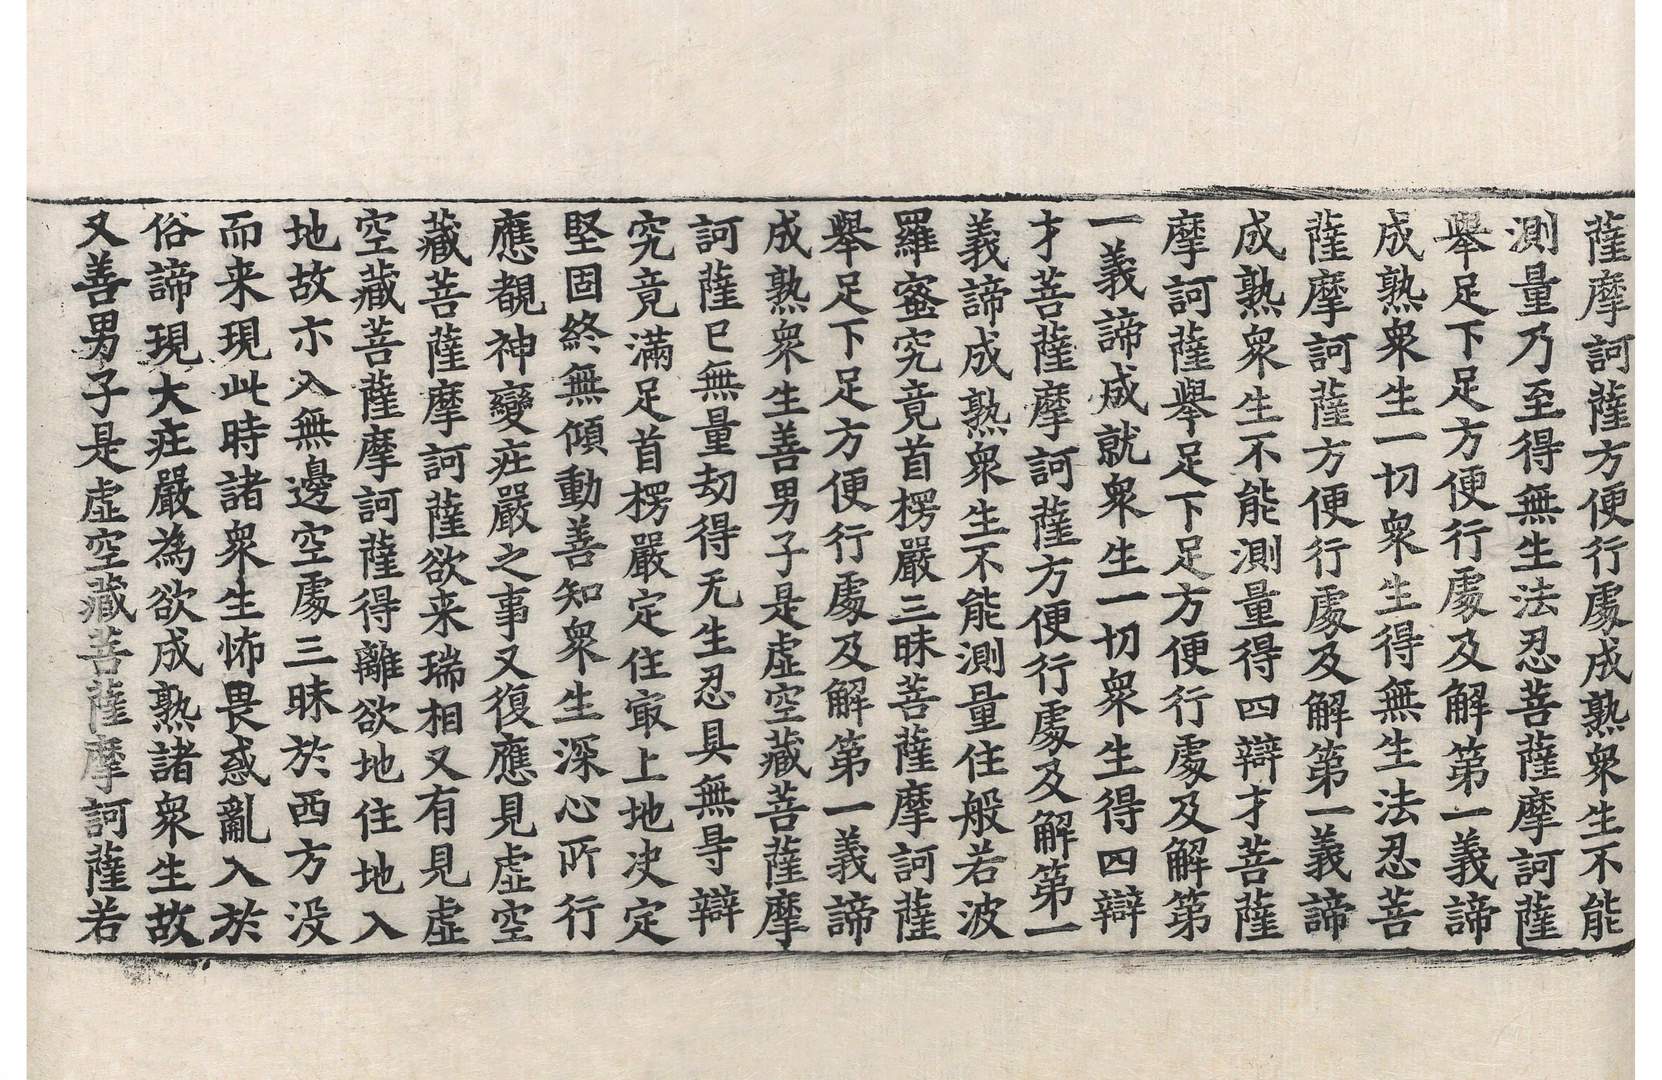 薩摩訶薩方便行處成熟衆生不能
測量乃至得無生法忍菩薩摩訶薩
舉足下足方便行處及解第一義諦
成熟衆生一切衆生得無生法忍菩
薩摩訶薩方便行處及解第一義諦
成熟衆生不能測量得四辯才菩薩
摩訶薩舉足下足方便行處及解第
一義諦成就衆生一切衆生得四辯
才菩薩摩訶薩方便行處及解第一
義諦成熟衆生不能測量住般若波
羅蜜究竟首楞嚴三昧菩薩摩訶薩
舉足下足方便行處及解第一義諦
成熟衆生善男子是虛空藏菩薩摩
訶薩已無量劫得无生忍具無㝵辯
究竟滿足首楞嚴定住㝡上地决定
堅固終無傾動善知衆生深心所行
應覩神變庄嚴之事又復應見虛空
藏菩薩摩訶薩欲来瑞相又有見虛
空藏菩薩摩訶薩得離欲地住地入
地故亦入無邊空處三昧於西方没
而来現此時諸衆生怖畏惑亂入於
俗諦現大庄嚴為欲成熟諸衆生故
又善男子是虛空藏菩薩摩訶薩若